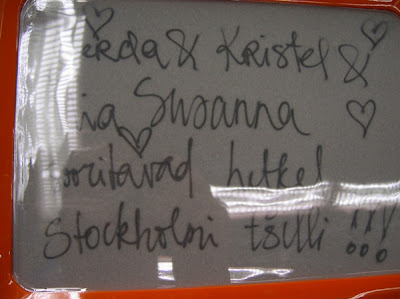 erda & Kristel &
ia Susanna
ooritavad hetkel
Stockholmi tšilli !!!